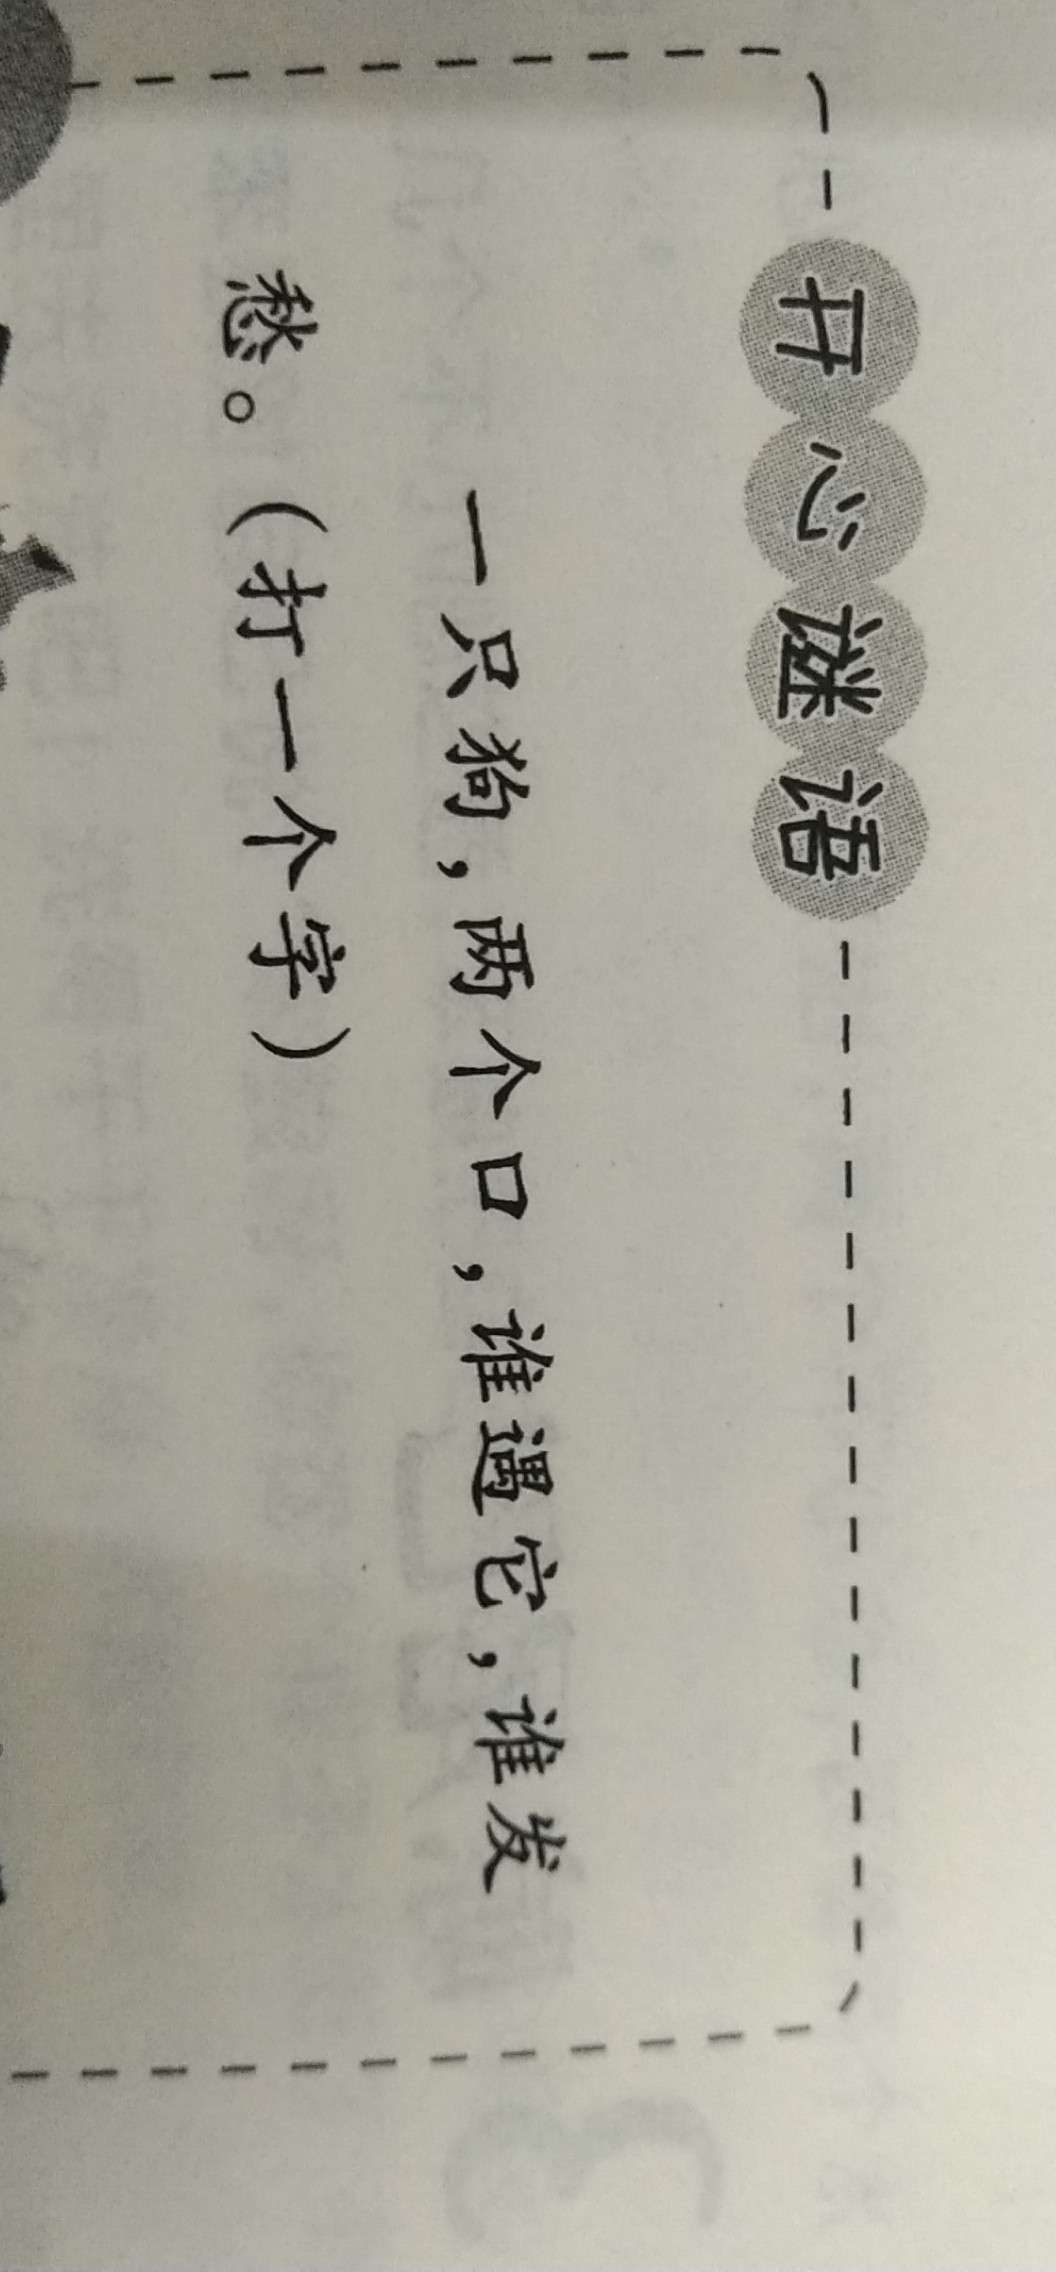 开心谜语
一只狗,两个口,谁遇它,谁发
愁。(打一个字)